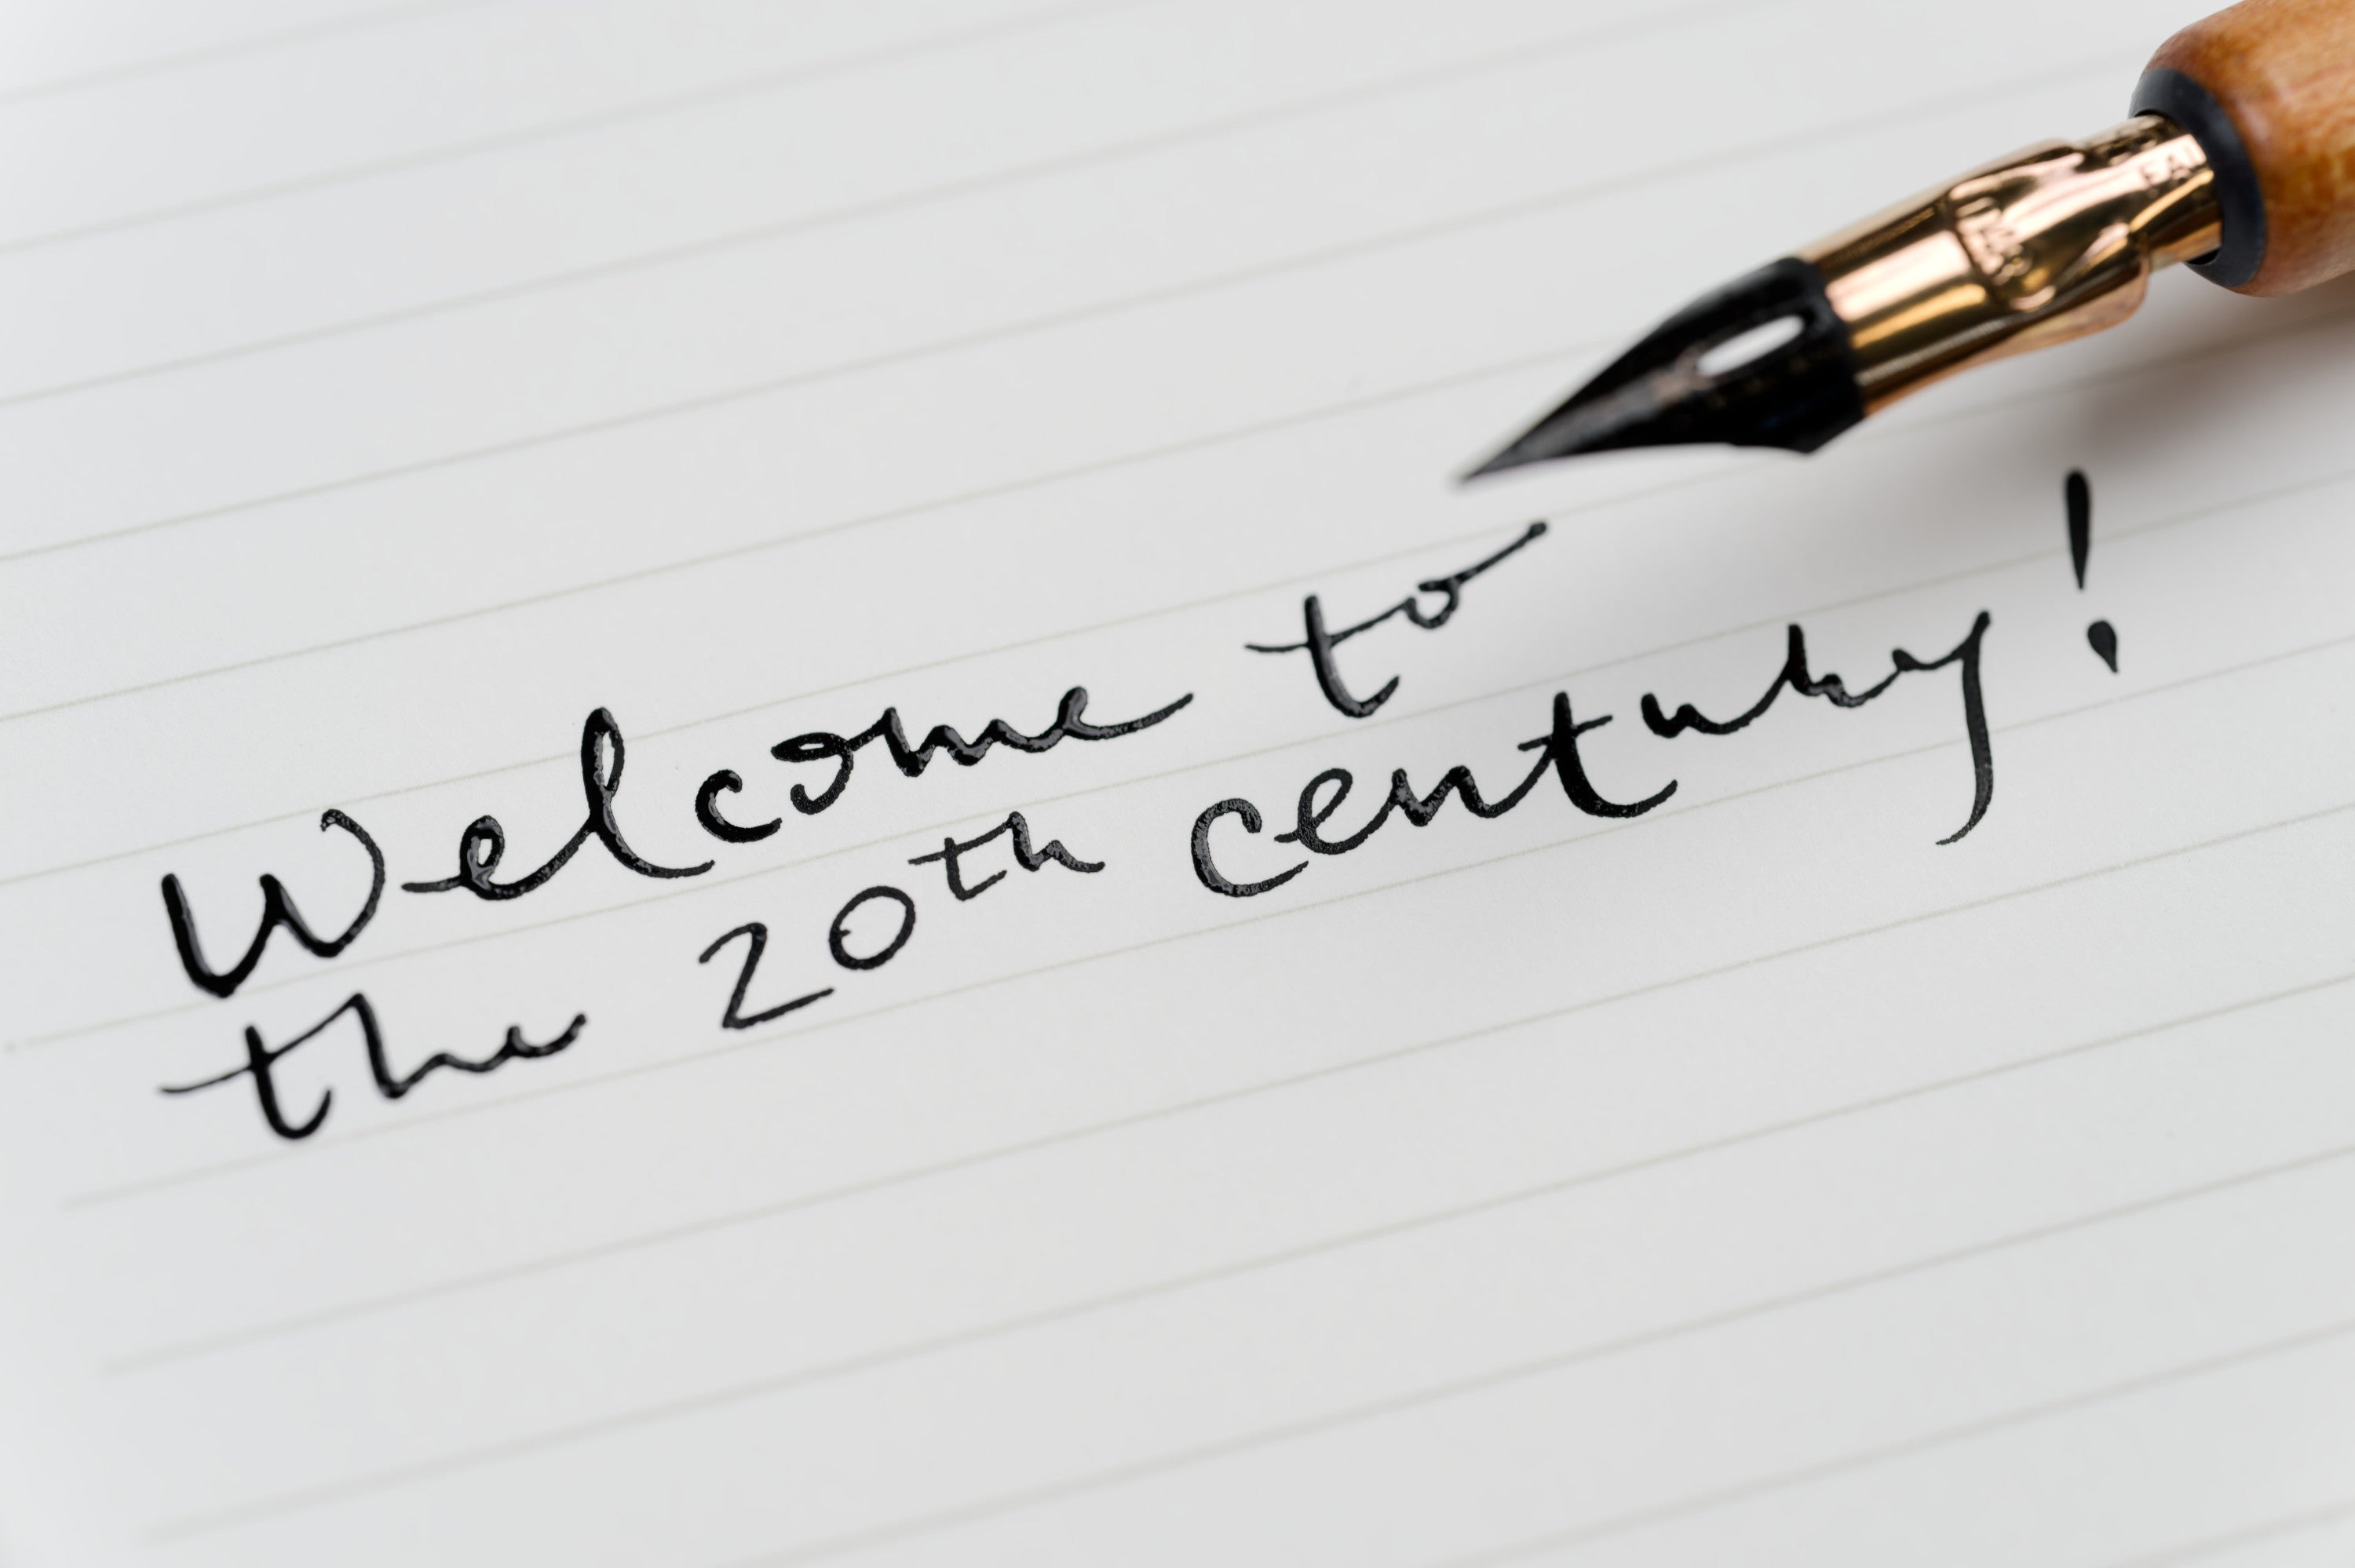 Welcome to
the 20th century!